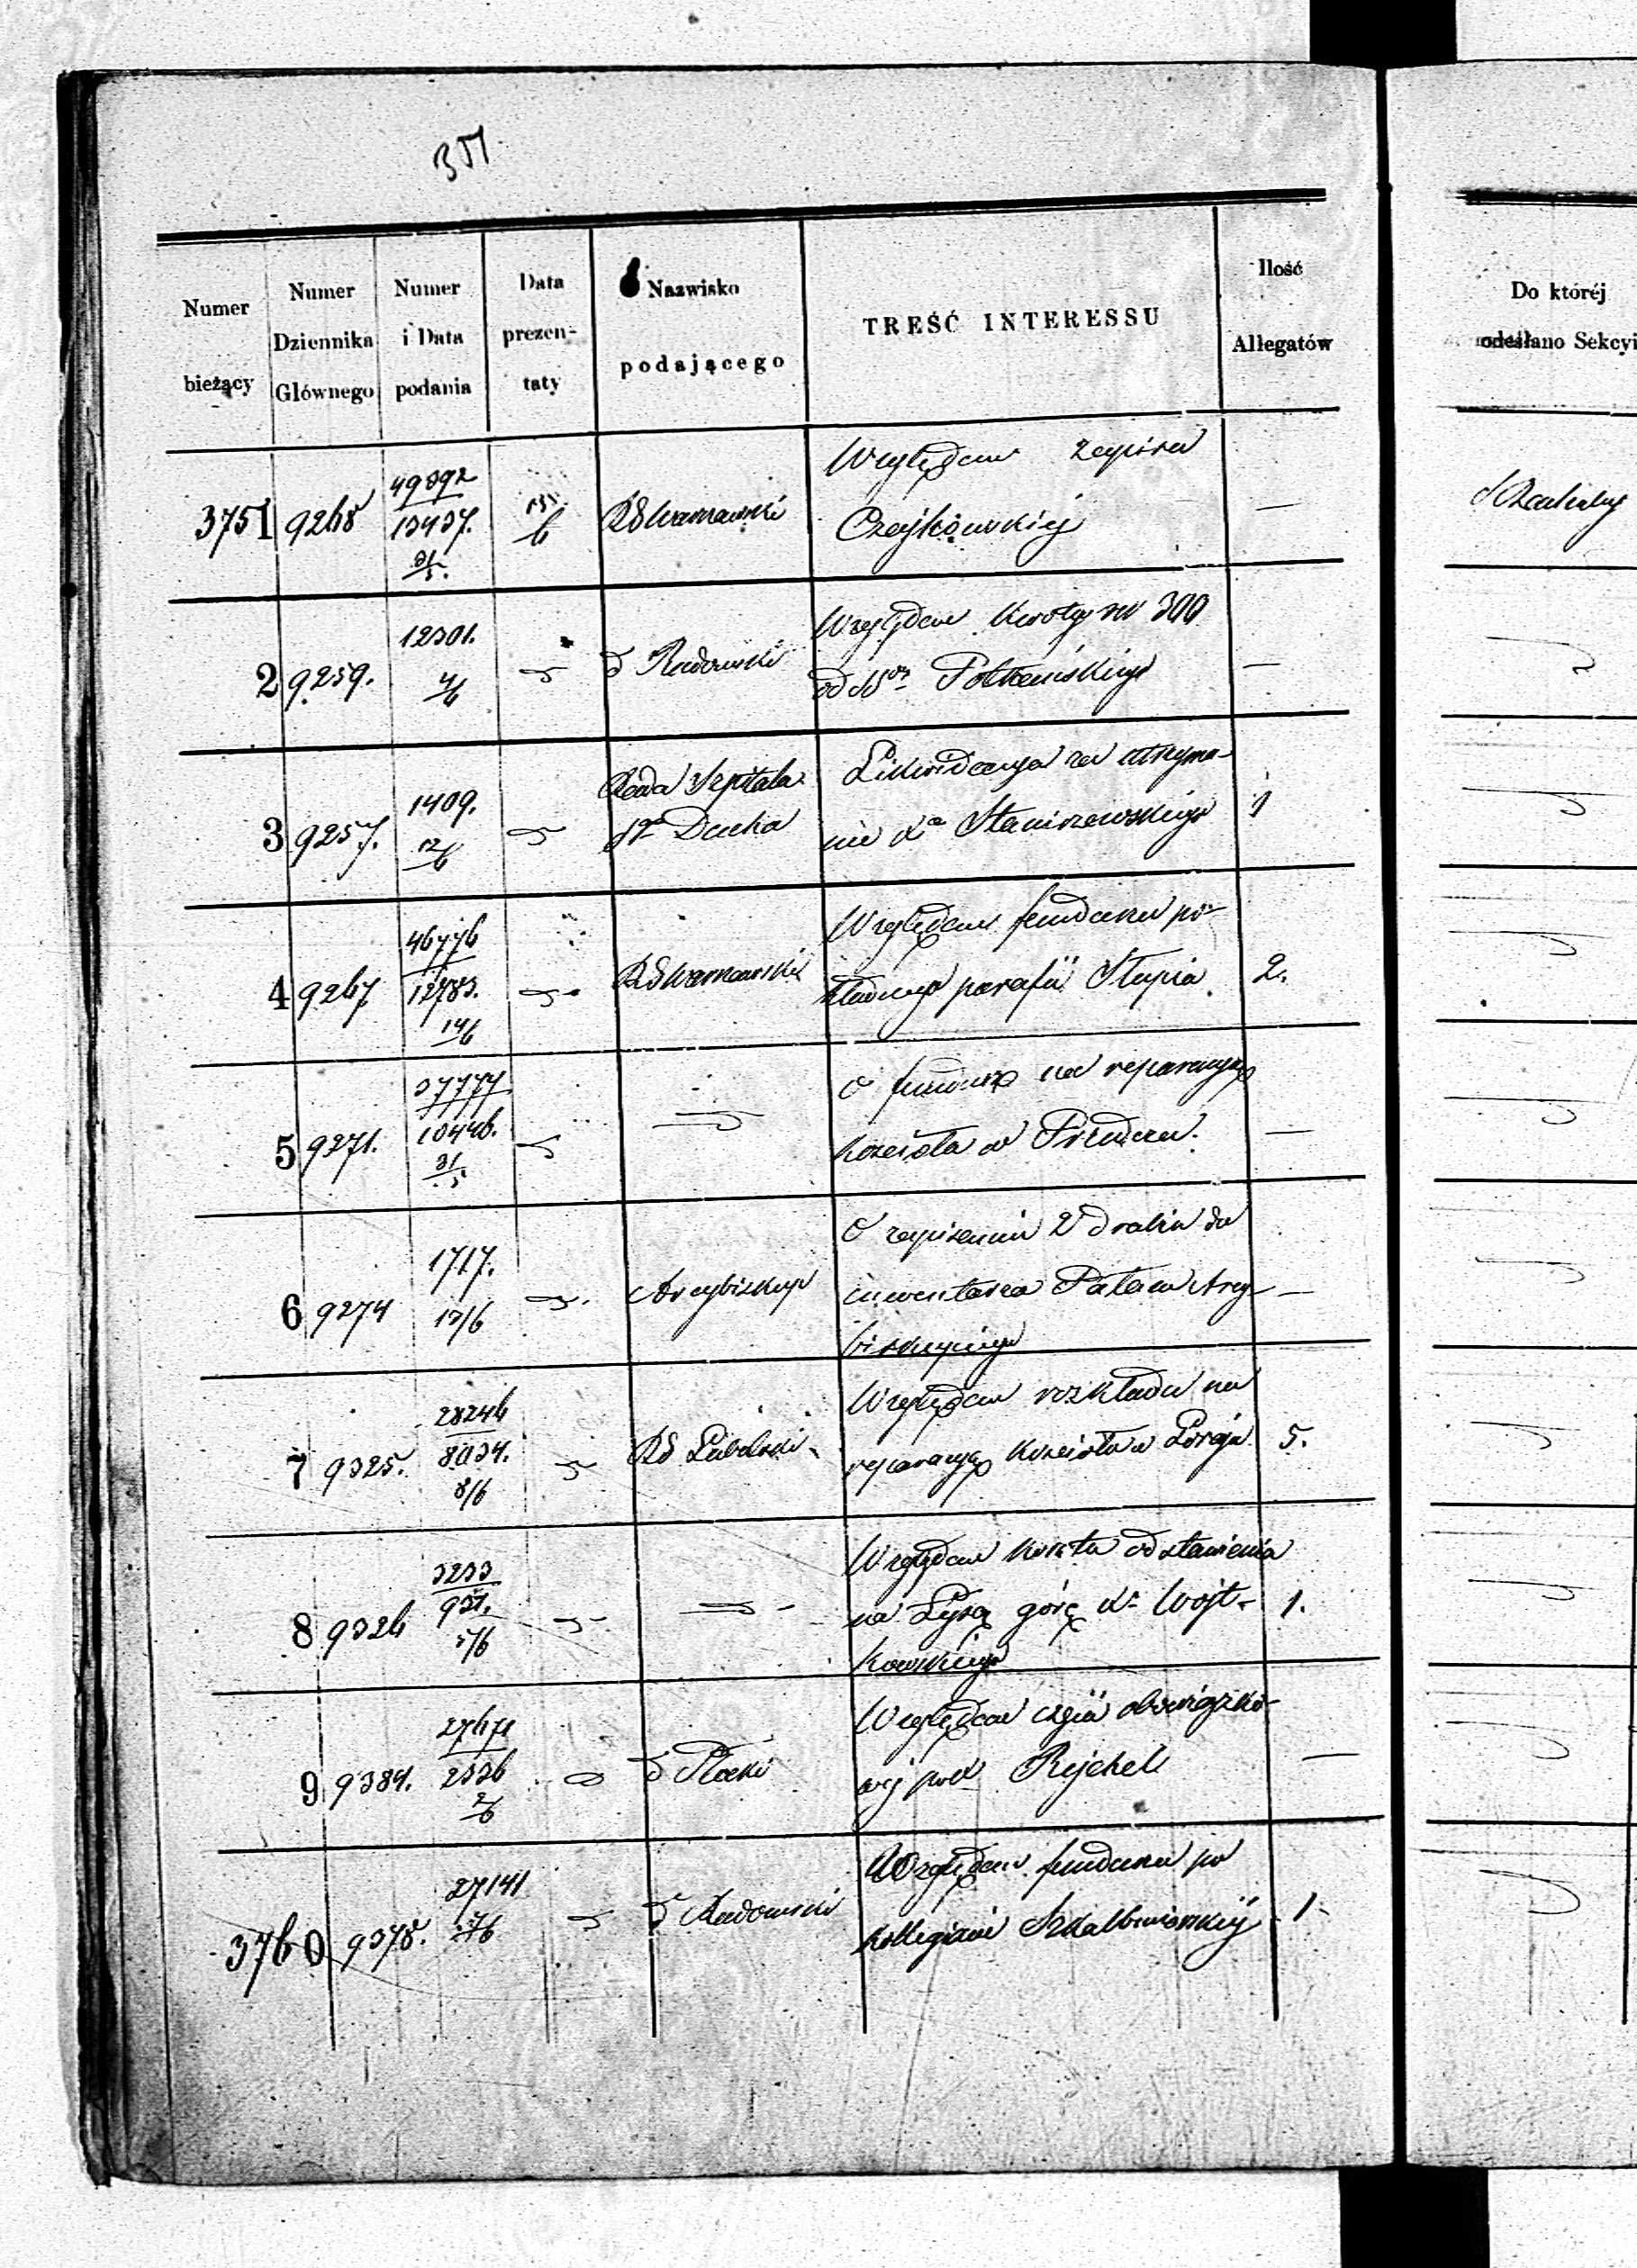 351
Numer bieżący
Numer Dziennika Głównego
Numer i Data podania
Data prezen-taty
Nazwisko podającego
TREŚĆ INTERESSU
Ilość Allegatów
Do któréj odesłano Sekcyi
3751 9268 49892 13437. 31/5. 15/6 RG Warszawski Względem zapisu —
Czajkowskiéj
2 9259. 12301. 4/6 d Radomski Względem kwoty rs 300
od Połkańskiego —
3 9257. 1409. 12/6 Rada Szpitala Likwidacya za utrzyma-
Sgo Ducha nie Xa Staniszewskiego 1
4 9267 46776 12783. 14/6 RG Warszawski Względem funduszu po-
kładnego parafii Słupia 2.
5 9271. 37777 10446. 31/5 O fundusz na reparacyą
kościoła w —
6 9274 1717. 13/6 Arcybiskup O zapisaniu 2 drabin do
inwentarza Pałacu Arcy- —
biskupiego
7 9325. 28246 8034. 8/6 RG Lubelski Względem rozkładu na
reparacyą kościoła w Goraju 5.
8 9326 3233 931. 5/6 Względem kosztu odstawienia
na Łysą górę Xa Wojt- 1.
kowskiego
9 9384. 27671 2336 2/6 d Płocki Względem obowiązko-
wéj Rejchel —
3760 9378. 27141 d Radomski Względem funduszu po
kollegiacie Szkalbmierskiéj 1